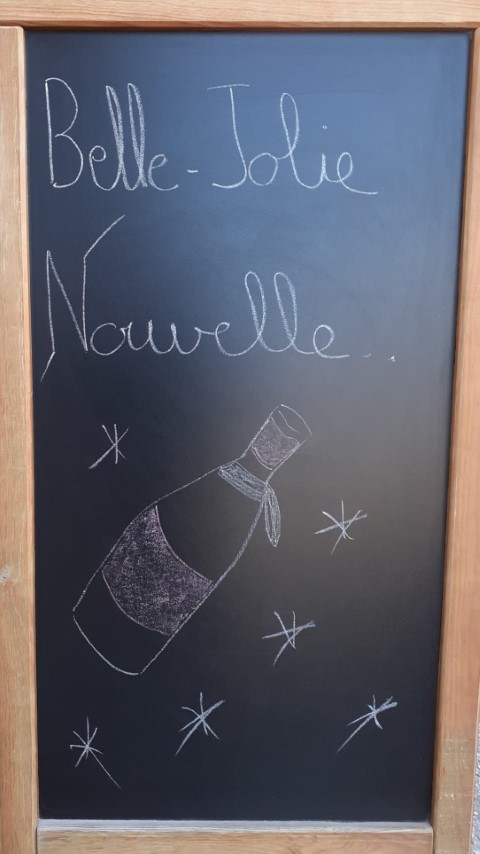 Belle-Jolie
Nouvelle...